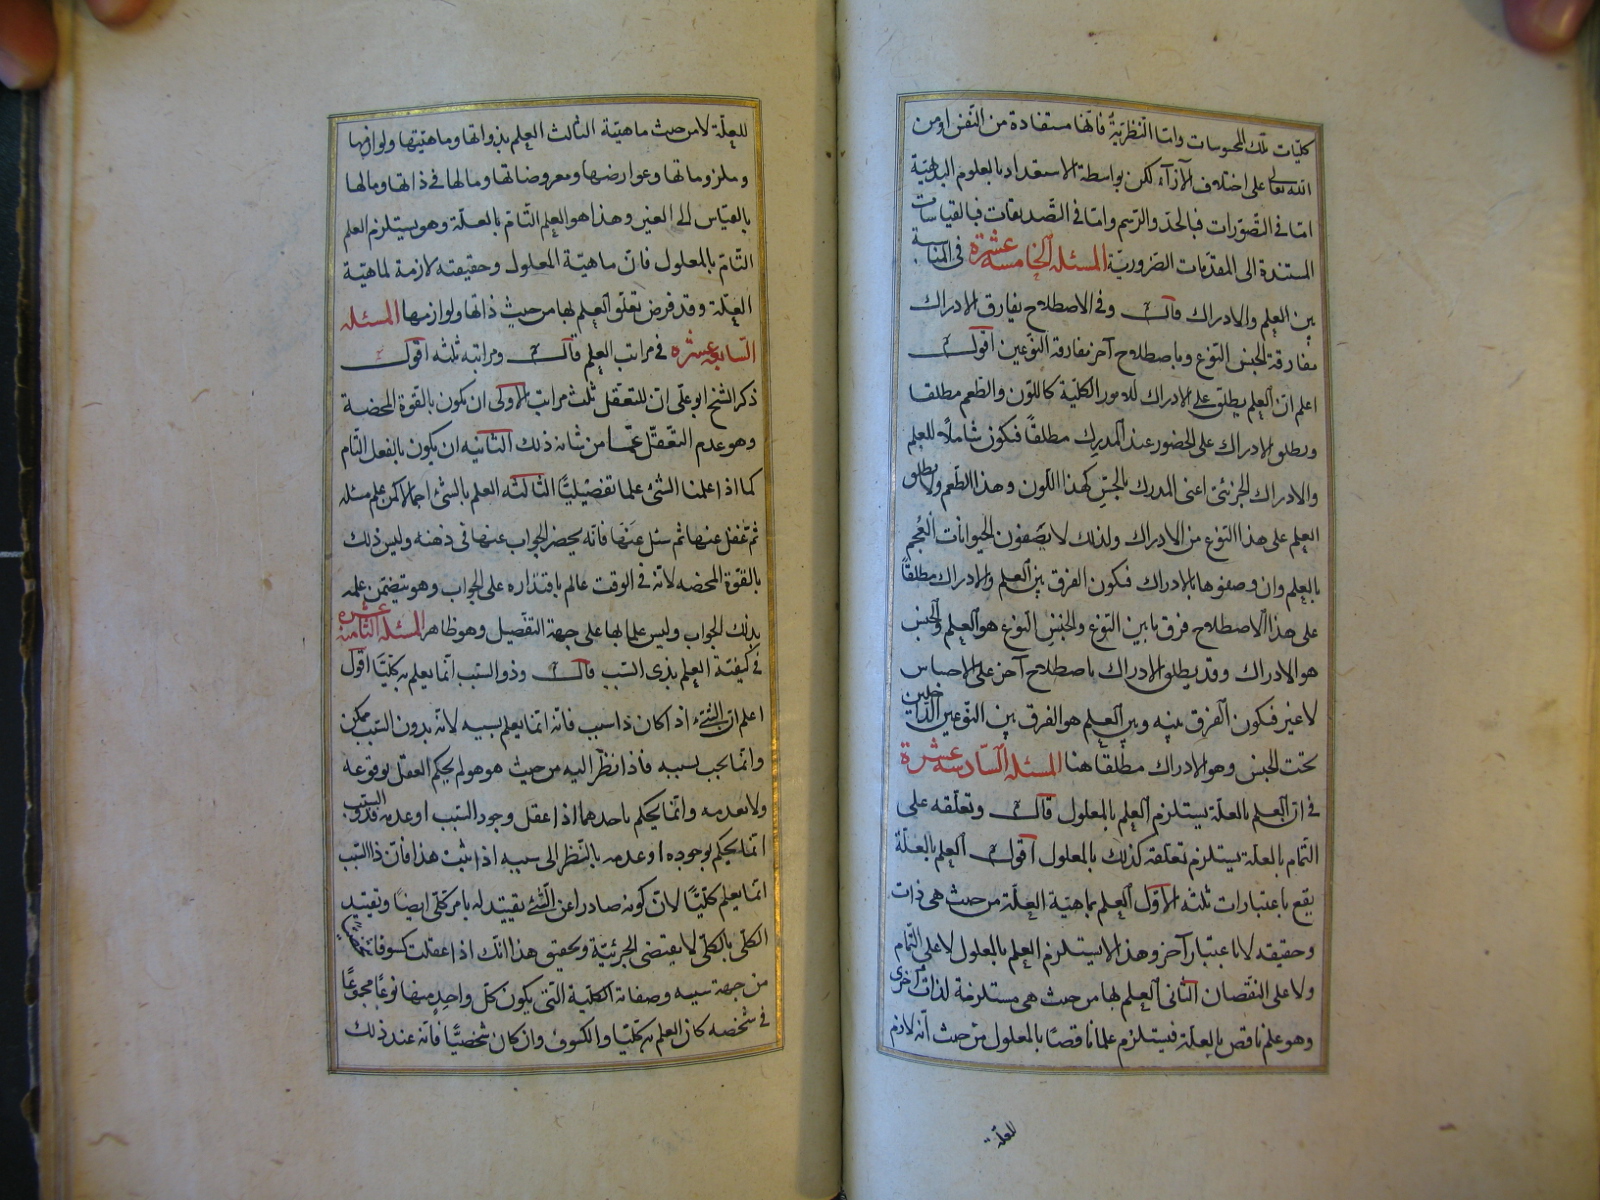 كليات تلك المحسوسات واما النظرية فانها مستفادة من النفس او من
الله تعالى على اختلاف الآراء لكن بواسطة الاستعداد بالعلوم البديهية
اما فى التصورات فبالحد والرسم واما فى التصديقات فبالقياسات
المستندة الى المقدمات الضرورية المسئلة الخامسة عشرة فى المناسبة
بين العلم والادراك قال وفى الاصطلاح يفارق الادراك
مفارقة الجنس النوع وباصطلاح آخر مفارقة النوعين اقول
اعلم ان العلم يطلق على الادراك للامور الكلية كاللون والطعم مطلقا
ويطلق الادراك على الحضور عند المدرك مطلقًا فيكون شاملًا للعلم
والادراك الجزئى اعنى المدرك بالحس كهذا اللون وهذا الطعم ولا يطلق
العلم على هذا النوع من الادراك ولذلك لا يصفون الحيوانات العُجم
بالعلم وان وصفوها بالادراك فيكون الفرق بين العلم والادراك مطلقًا
على هذا الاصطلاح فرق ما بين النوع والجنس النوع هو العلم والجنس
هو الادراك وقد يطلق الادراك باصطلاح آخر على الاحساس
لا غير فيكون الفرق بينه وبين العلم هو الفرق بين النوعين الداخلين
تحت الجنس وهو الادراك مطلقًا هنا المسئلة السادسة عشرة
فى ان العلم بالعلة يستلزم العلم بالمعلول قال وتعلقه على
التمام بالعلة يستلزم تعلقه كذلك بالمعلول اقول العلم بالعلة
يقع باعتبارات ثلثه الاول العلم بماهية العلة من حيث هى ذات
وحقيقه لا باعتبار آخر وهذا لا يستلزم العلم بالمعلول لا على التمام
ولا على النقصان الثانى العلم بها من حيث هى مستلزمة لذات اخرى
وهو علم ناقص بالعلة فيستلزم علما ناقصًا بالمعلول من حيث انه لازم
للعلة
للعلة لا من حيث ماهيته الثالث العلم بذواتها وماهيتها ولوازمها
وملزوماتها وعوارضها ومعروضاتها وما لها فى ذاتها وما لها
بالقياس الى الغير وهذا هو العلم التام بالعلة وهو يستلزم العلم
التام بالمعلول فان ماهية المعلول وحقيقته لازمة لماهية
العلة وقد فرض تعلق العلم بها من حيث ذاتها ولوازمها المسئله
السابعة عشره فى مراتب العلم قال ومراتبه ثلثه اقول
ذكر الشيخ ابو على ان للتعقل ثلث مراتب الاولى ان يكون بالقوة المحضة
وهو عدم التعقل عما من شانه ذلك الثانيه ان يكون بالفعل التام
كما اذا علمنا الشئ علما تفصيليًا الثالثه العلم بالشئ اجمالا كمن علم مسئله
ثم غفل عنها ثم سئل عنها فانه يحضر الجواب عنها فى ذهنه وليس ذلك
بالقوة المحضه لانه فى الوقت عالم باقتداره على الجواب وهو يتضمن علمه
بذلك الجواب وليس علما بها على جهة التفصيل وهو ظاهر المسئلة الثامنه عشره
فى كيفية العلم بذى السبب قال وذو السبب انما يعلم به كليا اقول
اعلم ان الشئ اذا كان ذا سبب فانه انما يعلم بسببه لانه بدون السبب ممكن
وانما يجب بسببه فاذا نظر اليه من حيث هو هو لم يحكم العقل بوقوعه
ولا بعدمه وانما يحكم باحدهما اذا عقل وجود السبب او عدمه فذو السبب
انما يحكم بوجوده او عدمه بالنظر الى سببه اذا ثبت هذا فان ذا السبب
انما يعلم كليًا لان كونه صادرا عن الشئ تقييد له بامر كلى ايضا وتقييد
الكلى بالكلى لا يقتضى الجزئية وتحقيق هذا انك اذا عقلت كسوفا شخصيا
من جهة سببه وصفاته الكلية التى يكون كل واحد منها نوعًا مجموعًا
فى شخصه كان العلم به كليا والكسوف وان كان شخصيًا فانه عند ذلك